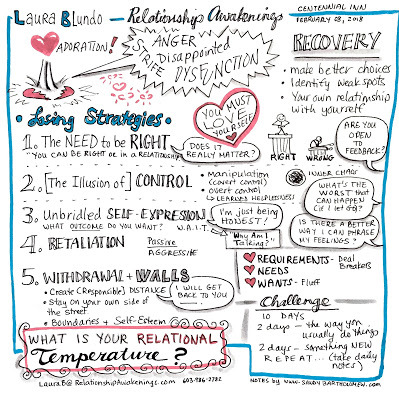 Laura Blundo — Relationship Awakenings
CENTENNIAL INN
FEBRUARY 08, 2018
ADORATION!
ANGER
Disappointed
STRIFE
DYSFUNCTION
RECOVERY
• make better choices
• Identify weak spots
• Your own relationship with yourself
YOU MUST
LOVE
YOURSELF
• Losing Strategies •
1. The NEED to be RIGHT
"YOU CAN BE RIGHT or in a RELATIONSHIP"
DOES IT REALLY MATTER?
RIGHT
WRONG
ARE YOU OPEN TO FEEDBACK?
2. [The Illusion of] CONTROL
• Manipulation
(covert control)
• overt control
↳ LEARNED HELPLESSNESS!
INNER CHAOS
WHAT'S THE WORST that CAN HAPPEN (if I let go)?
3. Unbridled SELF-EXPRESSION
WHAT OUTCOME DO YOU WANT?
W.A.I.T.
I'm just being HONEST!
"Why Am I Talking?"
IS THERE A BETTER WAY I CAN PHRASE MY FEELINGS?
4. RETALIATION
Passive
AGGRESSIVE
5. WITHDRAWAL + WALLS
• Create (Responsible) DISTANCE
• Stay on your own side of the street
• Boundaries + Self-Esteem
I WILL GET BACK TO YOU
REQUIREMENTS - Deal Breakers
NEEDS
WANTS - Fluff
Challenge
10 DAYS
2 days — the way you usually do things
2 days — Something NEW
REPEAT... (take daily notes)
WHAT IS YOUR RELATIONAL
Temperature?
LAURAB@RELATIONSHIPAWAKENINGS.COM
NOTES by WWW.SANDYBARTHOLOMEW.COM